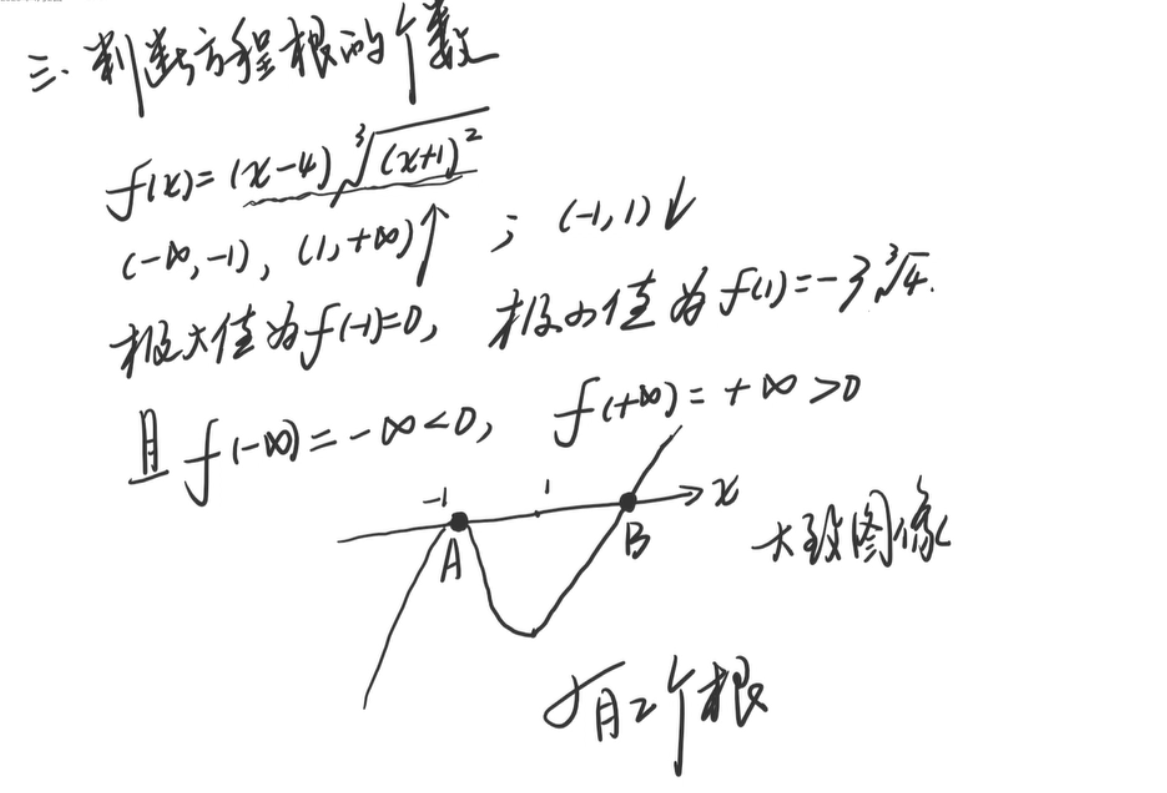 三. 判断方程根的个数
f(x)=(x-4)∛(x+1)²
(-∞,-1), (1,+∞)↑ ; (-1,1)↓
极大值为f(-1)=0, 极小值为f(1)=-3∛4.
且 f(-∞)=-∞<0, f(+∞)=+∞>0
-1 1 x
A B 大致图像
有2个根